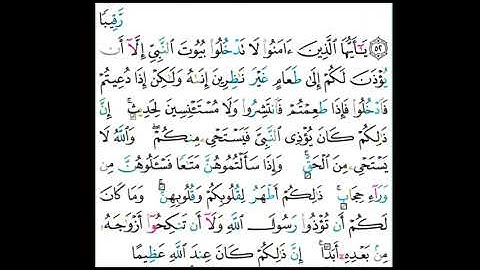 رَّقِيبًا
﴿٥٢﴾ يَـٰٓأَيُّهَا ٱلَّذِينَ ءَامَنُوا۟ لَا تَدْخُلُوا۟ بُيُوتَ ٱلنَّبِىِّ إِلَّآ أَن
يُؤْذَنَ لَكُمْ إِلَىٰ طَعَامٍ غَيْرَ نَـٰظِرِينَ إِنَىٰهُ وَلَـٰكِنْ إِذَا دُعِيتُمْ
فَٱدْخُلُوا۟ فَإِذَا طَعِمْتُمْ فَٱنتَشِرُوا۟ وَلَا مُسْتَـْٔنِسِينَ لِحَدِيثٍ ۚ إِنَّ
ذَٰلِكُمْ كَانَ يُؤْذِى ٱلنَّبِىَّ فَيَسْتَحْىِۦ مِنكُمْ ۖ وَٱللَّهُ لَا
يَسْتَحْىِۦ مِنَ ٱلْحَقِّ ۚ وَإِذَا سَأَلْتُمُوهُنَّ مَتَـٰعًا فَسْـَٔلُوهُنَّ مِن
وَرَآءِ حِجَابٍ ۚ ذَٰلِكُمْ أَطْهَرُ لِقُلُوبِكُمْ وَقُلُوبِهِنَّ ۚ وَمَا كَانَ
لَكُمْ أَن تُؤْذُوا۟ رَسُولَ ٱللَّهِ وَلَآ أَن تَنكِحُوٓا۟ أَزْوَٰجَهُۥ
مِنۢ بَعْدِهِۦٓ أَبَدًا ۚ إِنَّ ذَٰلِكُمْ كَانَ عِندَ ٱللَّهِ عَظِيمًا